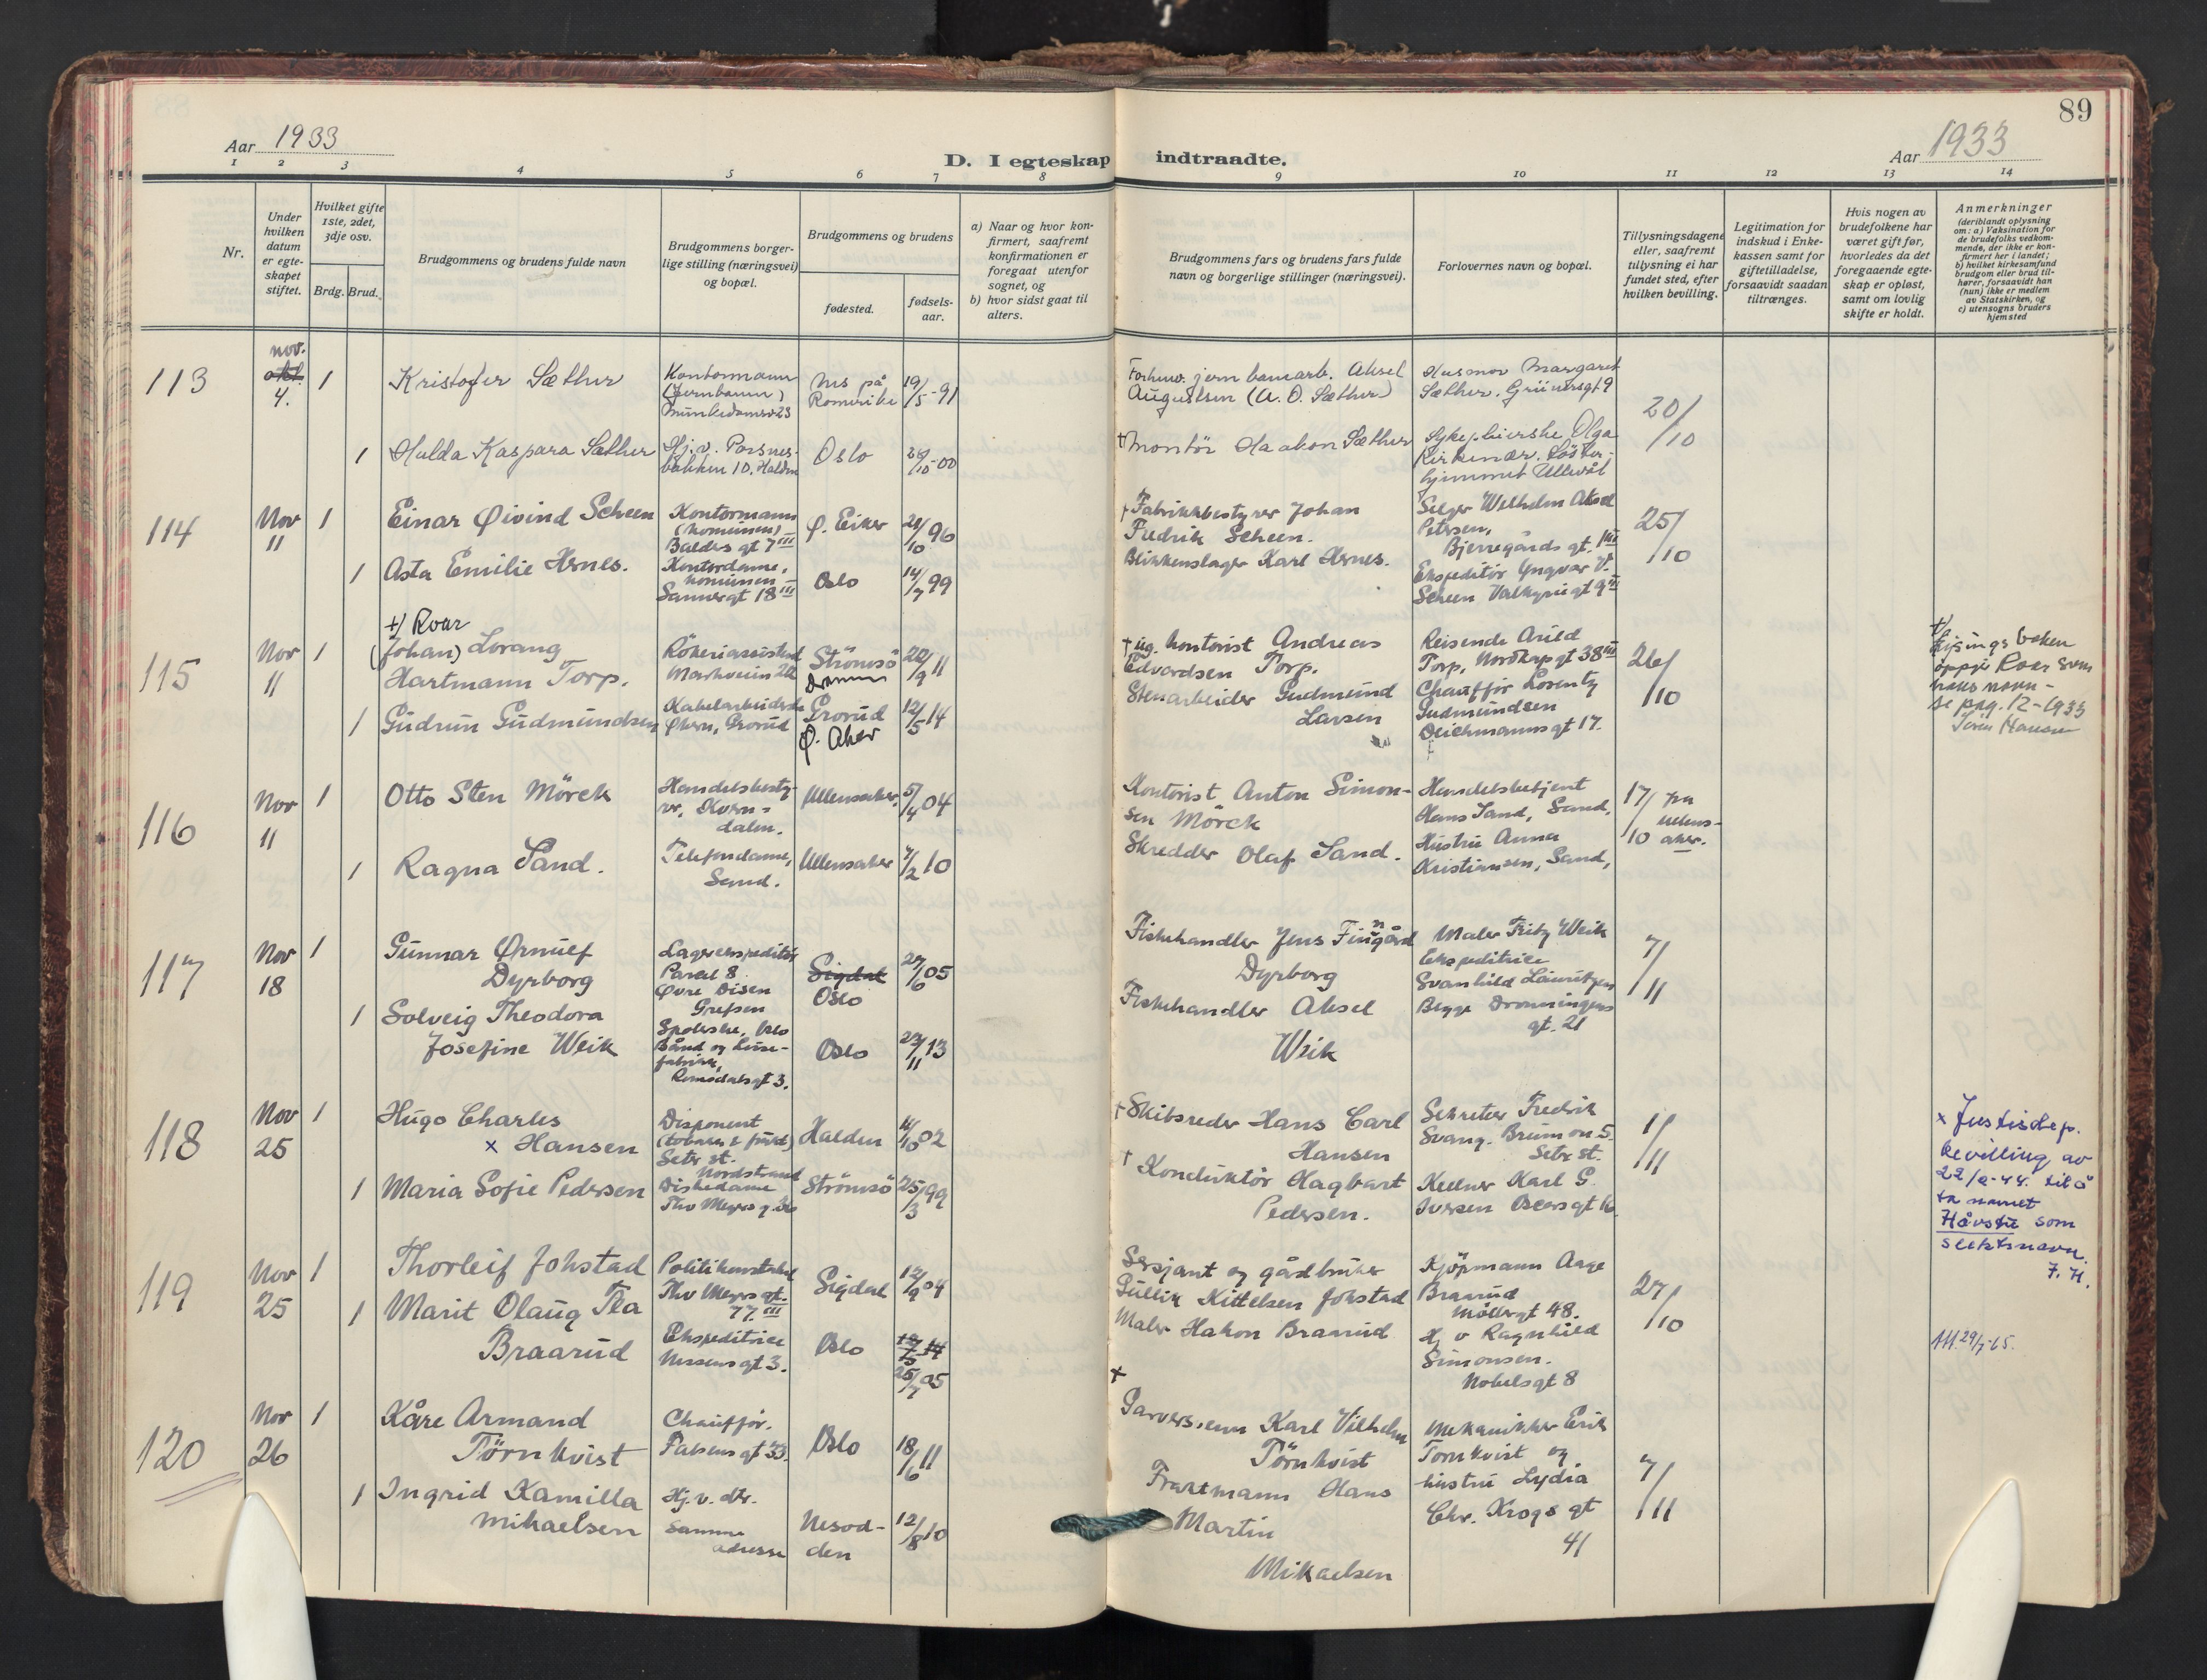 89
Aar 1933
D. I egteskap indtraadte.
Aar 1933
1 2 3 4 5 6 7 8 9 10 11 12 13 14
Nr.
Under hvilken datum er egteskapet stiftet.
Hvilket gifte 1ste, 2det, 3dje osv.
Brdg. Brud.
Brudgommens og brudens fulde navn
Brudgommens borgerlige stilling (næringsvei) og bopæl.
Brudgommens og brudens
fødested.
fødselsaar.
a) Naar og hvor konfirmert, saafremt konfirmationen er foregaat utenfor sognet, og
b) hvor sidst gaat til alters.
Brudgommens fars og brudens fars fulde navn og borgerlige stillinger (næringsvei).
Forlovernes navn og bopæl.
Tillysningsdagene eller, saafremt tillysning ei har fundet sted, efter hvilken bevilling.
Legitimation for indskud i Enkekassen samt for giftetilladelse, forsaavidt saadan tiltrænges.
Hvis nogen av brudefolkene har været gift før, hvorledes da det foregaaende egteskap er opløst, samt om lovlig skifte er holdt.
Anmerkninger
(deriblandt oplysning om: a) Vaksination for de brudefolks vedkommende, der ikke er konfirmert her i landet;
b) hvilket kirkesamfund brudgom eller brud tilhører, forsaavidt han (hun) ikke er medlem av Statskirken, og
c) utensogns bruders hjemsted
113
nov.
okt.
4.
1
Kristofer Sæther
Kontormann
(Jernbanen)
Munkedamsv 23
Nes på
Romerike
19/5-91
Forhenv. jernbanearb. Aksel
Augustsen (A. O. Sæther)
Husmor Margaret
Sæther. Grünersgt. 9
20/10
1
Hulda Kaspara Sæther
Hj.v.
bakken 10. Halden
Oslo
10-00
† Montör Haakon Sæther
Sykepleierske Olga
Kirkenær. Söster-
hjemmet Ullevål
114
Nov
11
1
Einar Øivind Scheen
Kontormann
(kommunen)
Baldes gt 7 III
Ø. Eiker
21/10 96
† Fabrikkbestyrer Johan
Fredrik Scheen.
Selger Wilhelm Aksel
Petersen,
Bjerregårds gt. 1 III
25/10
1
Asta Emilie Hernes.
Kontordame,
kommunen
Sannergt 18 III
Oslo
14/7 99
Blikkenslager Karl Hernes.
Ekspeditör Yngvar V.
Scheen Valkyriegt 9 II
115
Nov
11
1
+) Roar
(Johan) Lorang
Hartmann Torp.
Rökeriassistent
Markveien 22
Strömsö
Drammen
22/9 11
† ug. kontorist Andreas
Edvardsen Torp.
Reisende Arild
Torp, Nordkapgt 38 III
26/10
+)
Lysingsboken
oppgir Roar som
hans navn -
se pag. 12-1933
1
Gudrun Gudmundsen
Kabelarbeiderske
Økern, Grorud
Grorud
Ø. Aker
12/5 14
Stenarbeider Gudmund
Larsen
Chaufför Lorentz
Gudmundsen
Deichmannsgt 17.
116
Nov
11
1
Otto Sten Mörck
Handelsbesty-
rer, Korn-
dalen.
Ullensaker
5/4 04
Kontorist Anton Simon-
sen Mörck
Handelsbetjent
Hans Sand, Sand,
17/10 fra
Ullens-
aker.
1
Ragna Sand.
Telefondame,
Sand.
Ullensaker
7/2 10
Skredder Olaf Sand.
Hustru Anna
Kristiansen, Sand,
117
Nov
18
1
Gunnar Ørnulf
Dyrborg
Lagerekspeditör
Parcel 8
Øvre Disen
Grefsen
Sigdal
Oslo
27/6 05
Fiskehandler Jens Finngård
Dyrborg
Maler Fritz Weik
Ekspeditrice
Svanhild Lauritzen
Begge Dronningens
gt. 21
7/11
1
Solveig Theodora
Josefine Weik
Spolerske, Oslo
Bånd og Lisse-
fabrikk,
Romsdalsgt 3.
Oslo
23/11 13
Fiskehandler Aksel
Weik
118
Nov
25
1
Hugo Charles
x Hansen
Disponent
Seter st.
Nordstrand
Halden
14/10 02
† Skibsreder Hans Carl
Hansen
Sekretær Fredrik
Svang. Brumon 5.
Seter st.
1/11
x Justisdep.
bevilling av
22/2-44. til å
ta namnet
Håvstu som
slektsnavn.
F. H.
1
Maria Sofie Pedersen
Diskedame
Thv Meyers g.
Strömsö
25/3 99
† Konduktör Hagbart
Pedersen.
Kelner Karl G.
Iversen Oscarsgt 16
119
Nov
25
1
Thorleif Johstad
Politikonstabel
Thv Meyers gt.
77. III
Sigdal
12/9 04
Sersjant og gårdbruker
Gullik Kittelsen Johstad
Kjöpmann Aage
Braarud
Möllergt 48.
27/10
1
Marit Olaug Tea
Braarud
Ekspeditrice
Nessensgt 3.
Oslo
25/7 05
Maler Hakon Braarud
Hj v Ragnhild
Simonsen.
Nobelsgt 8
AH. 29/7-65.
120
Nov
26
1
Kåre Armand
Törnkvist
Chaufför.
Falsensgt 33.
Oslo
18/6 11
+
Garversvenn Karl Vilhelm
Törnkvist
Mekanikker Erik
Tornkvist og
hustru Lydia
Chr. Krogs gt
41
7/11
1
Ingrid Kamilla
Mikaelsen
Hj. v. dtr.
Samme
adresse
Nesod-
den
12/8 10
Fraktmann Hans
Martin
Mikaelsen